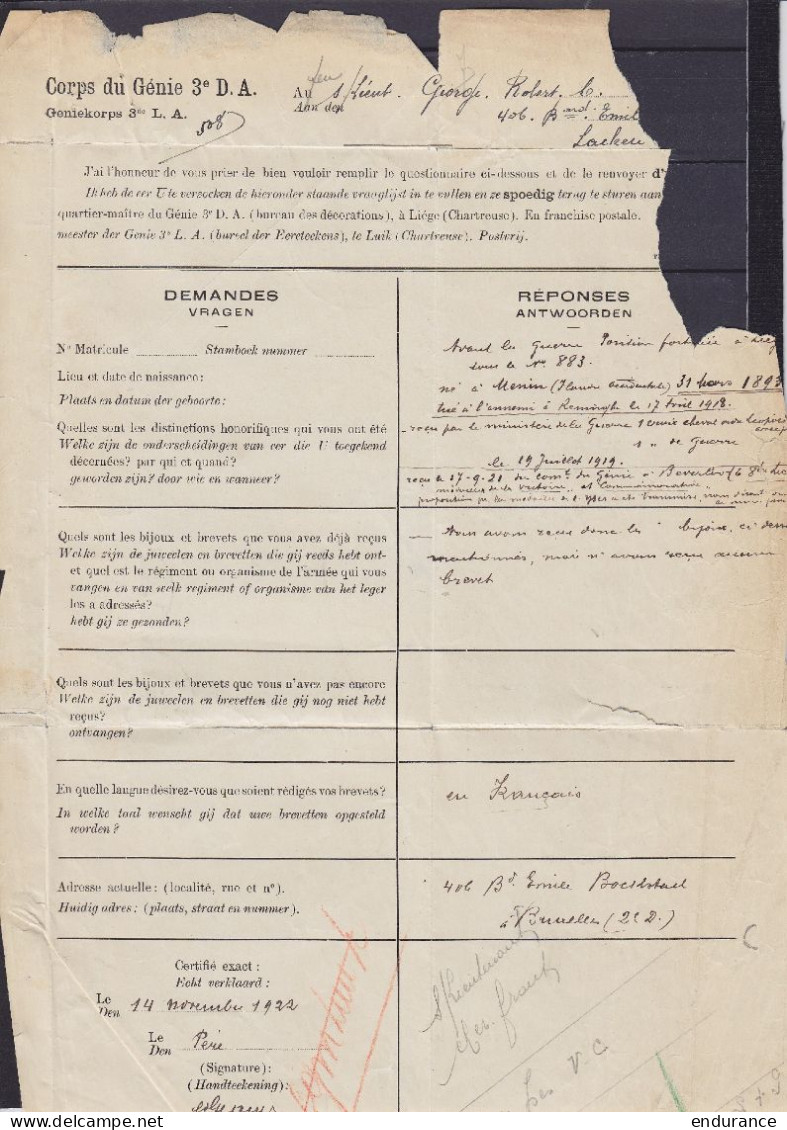 Corps du Génie 3e D. A.
Geniekorps 3de L. A.
508
Au feu s/Lieut. George, Robert. C.
Aan den
406. Bard. Emil
Laeken
J'ai l'honneur de vous prier de bien vouloir remplir le questionnaire ci-dessous et de le renvoyer d'
Ik heb de eer U te verzoeken de hieronder staande vraaglijst in te vullen en ze spoedig terug te sturen aan
quartier-maître du Génie 3e D. A. (bureau des décorations), à Liége (Chartreuse). En franchise postale.
meester der Genie 3e L. A. (bureel der Eereteekens), te Luik (Chartreuse). Postvrij.
DEMANDES
VRAGEN
RÉPONSES
ANTWOORDEN
No Matricule Stamboek nummer
Avant la guerre Position fortifiée à Liég
sous le no 883.
Lieu et date de naissance:
Plaats en datum der geboorte:
né à Menin (Flandre occidentale) 31 mars 1893
tué à l'ennemi à Reninghe le 17 avril 1918.
Quelles sont les distinctions honorifiques qui vous ont été
Welke zijn de onderscheidingen van eer die U toegekend
décernées? par qui et quand?
geworden zijn? door wie en wanneer?
reçu par le ministère de la Guerre 1 croix cheval ordre Léopold
1 " de Guerre
le 19 Juillet 1919.
reçu le 17-9-21 du comt du Génie à Beverloo
médailles de la victoire et Commémorative
Quels sont les bijoux et brevets que vous avez déjà reçus
Welke zijn de juweelen en brevetten die gij reeds hebt ont-
et quel est le régiment ou organisme de l'armée qui vous
vangen en van welk regiment of organisme van het leger
les a adressés?
hebt gij ze gezonden?
— Nous avons reçu donc les bijoux, ci dess
mentionnés, mais n'avons reçu aucun
brevet
Quels sont les bijoux et brevets que vous n'avez pas encore
Welke zijn de juweelen en brevetten die gij nog niet hebt
reçus?
ontvangen?
En quelle langue désirez-vous que soient rédigés vos brevets?
In welke taal wenscht gij dat uwe brevetten opgesteld
worden?
en Français
Adresse actuelle: (localité, rue et no).
Huidig adres: (plaats, straat en nummer).
406 Bd. Emile Bockstael
à Bruxelles (2e D.)
Certifié exact:
Echt verklaard:
Le
Den 14 novembre 1922
Le
Den Père
(Signature):
(Handteekening):
s/Lieutenant
V. C
endurance